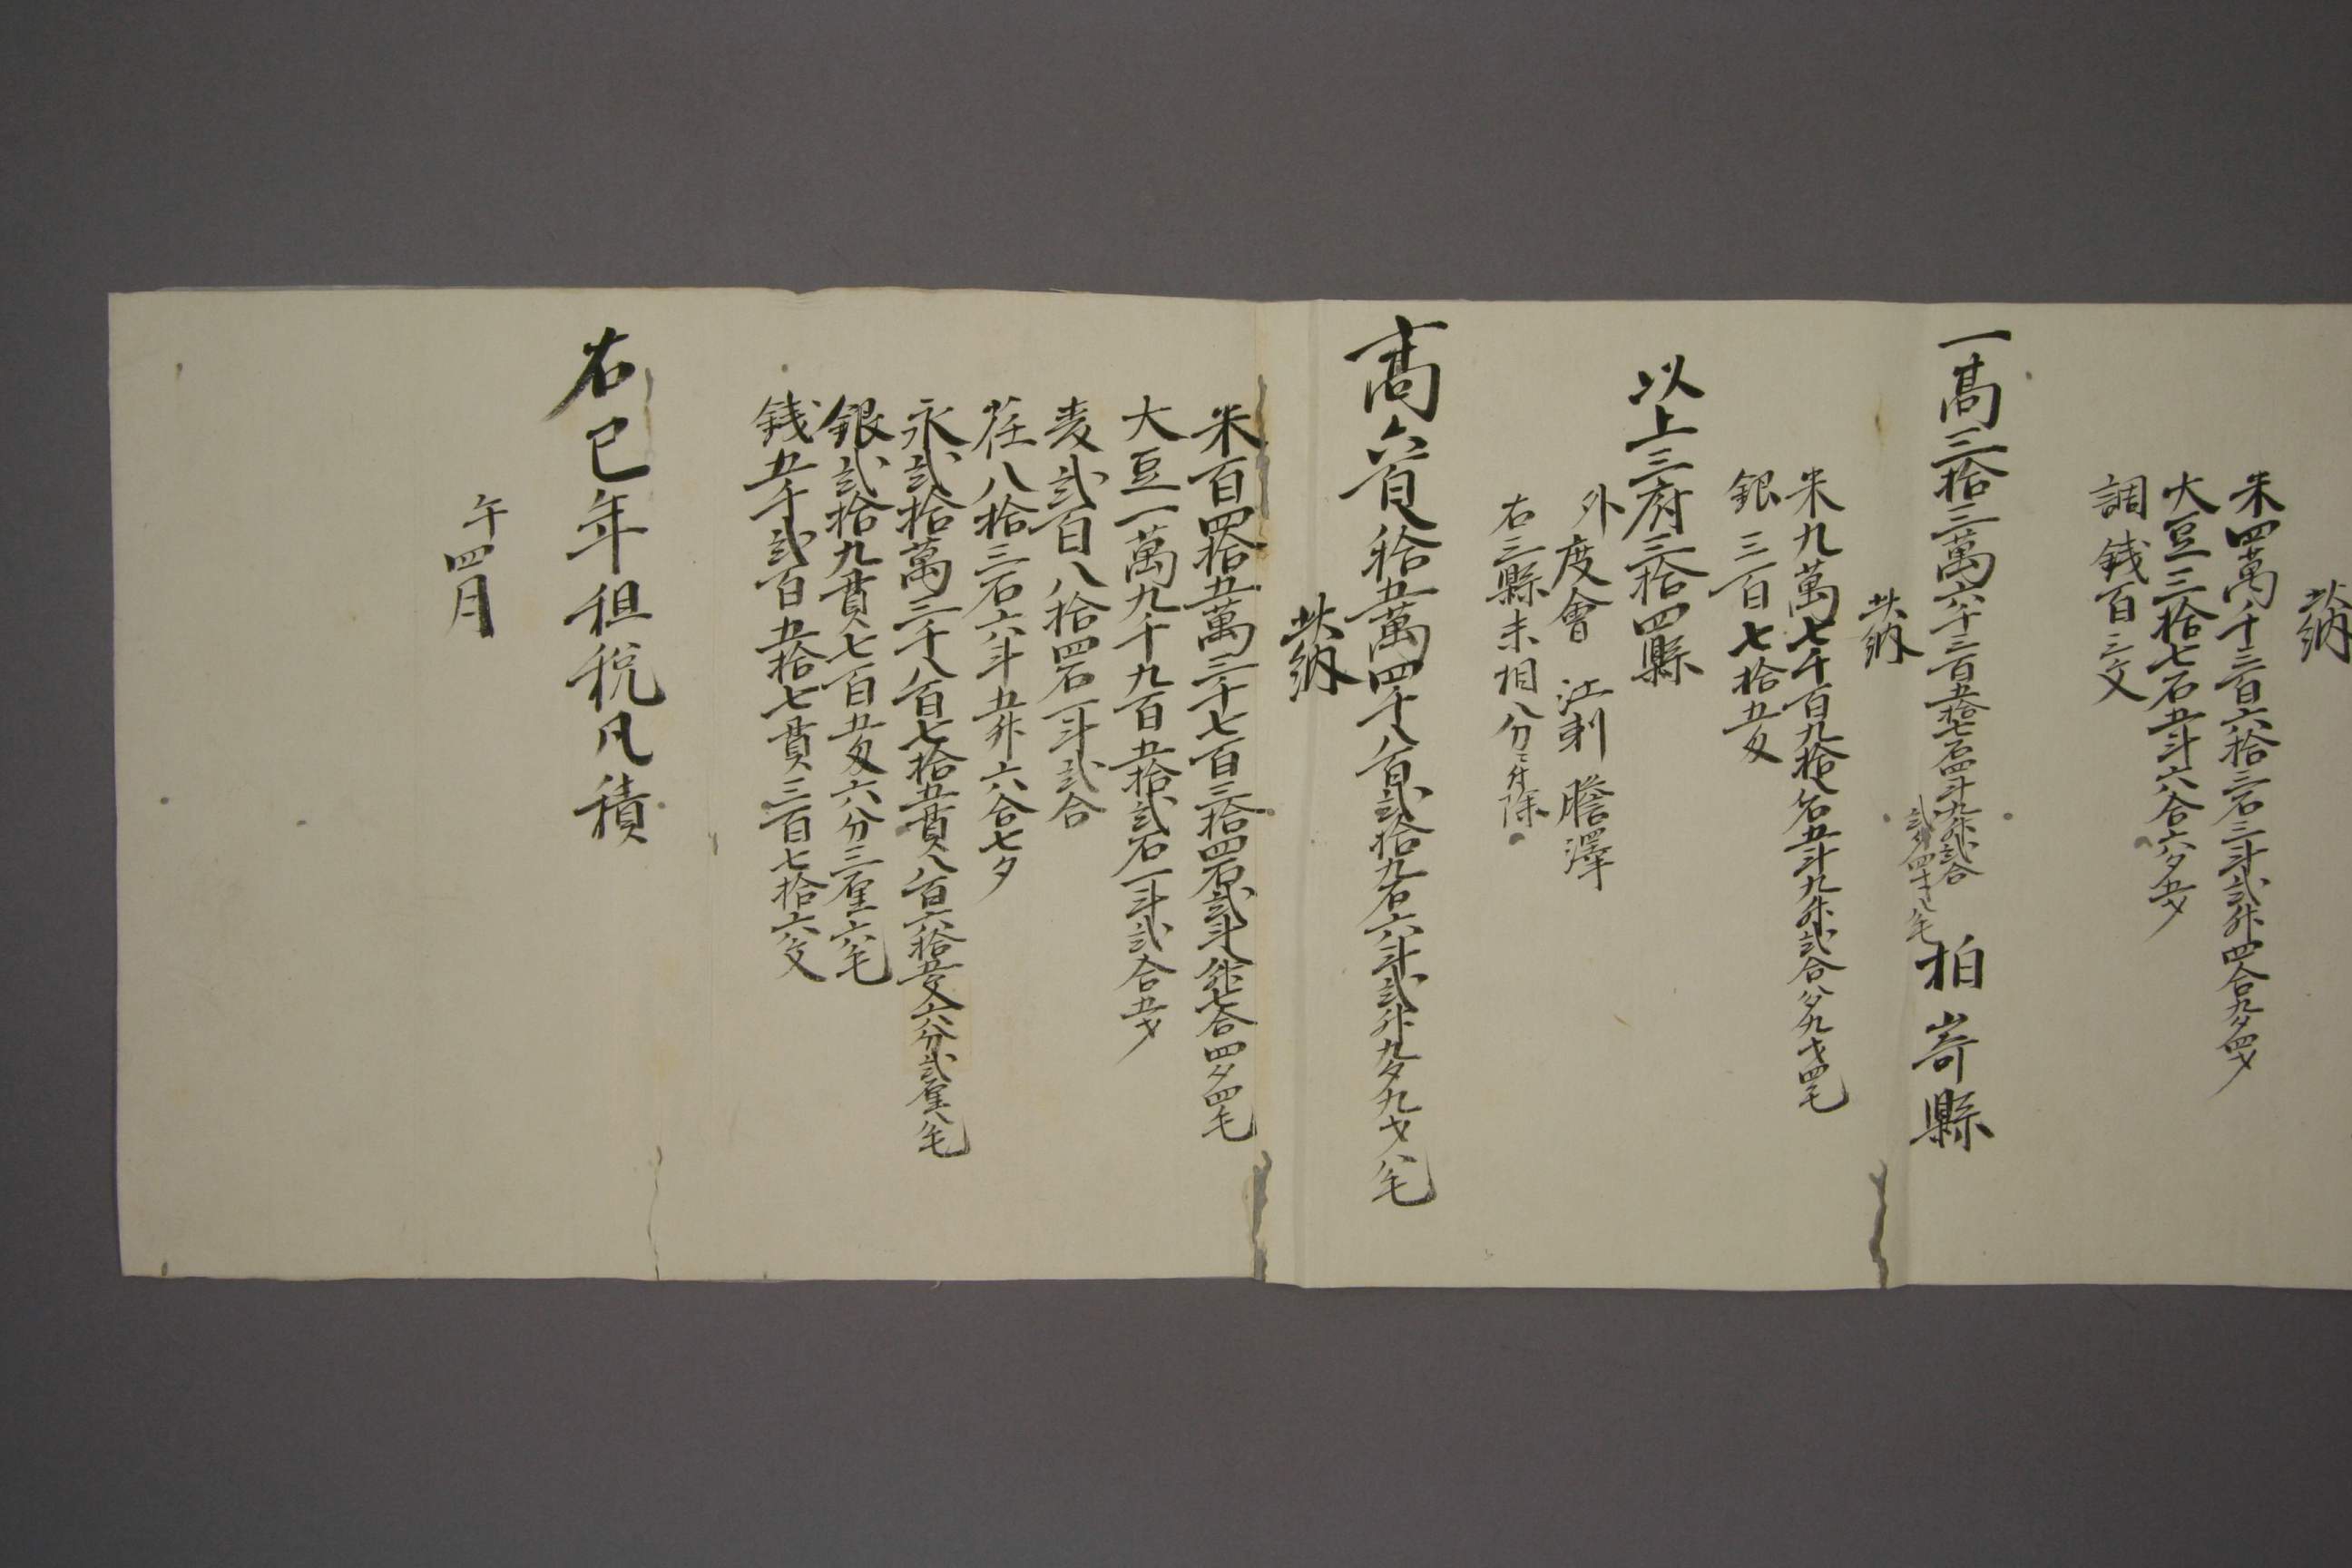 此納
米四萬千三百六拾三石三斗弐升四合九夕四才
大豆三拾七石五斗六合六夕五才
調錢百三文
一高三拾三萬六千三百五拾七石四斗九升弐合弐夕四才八毛 柏嵜縣
此納
米九萬七千百九拾八石五斗九升弐合八夕九才四毛
銀三百七拾五匁
以上三府三拾四縣
外度會 江刺 膽澤
右三縣未相分ニ付除
高六百八拾五萬四千八百弐拾九石六斗弐升九夕九才八毛
此納
米百四拾五萬三千七百三拾四石弐斗八升七合四夕四毛
大豆一萬九千九百五拾弐石一斗弐合五才
麦弐百八拾四石一斗弐合
荏八拾三石六斗五升六合七夕
永弐拾萬三千八百七拾五貫八百六拾五文六分弐厘八毛
銀弐拾九貫七百五匁六分三厘六毛
錢五千弐百五拾七貫三百七拾六文
右巳年租税凡積
午四月